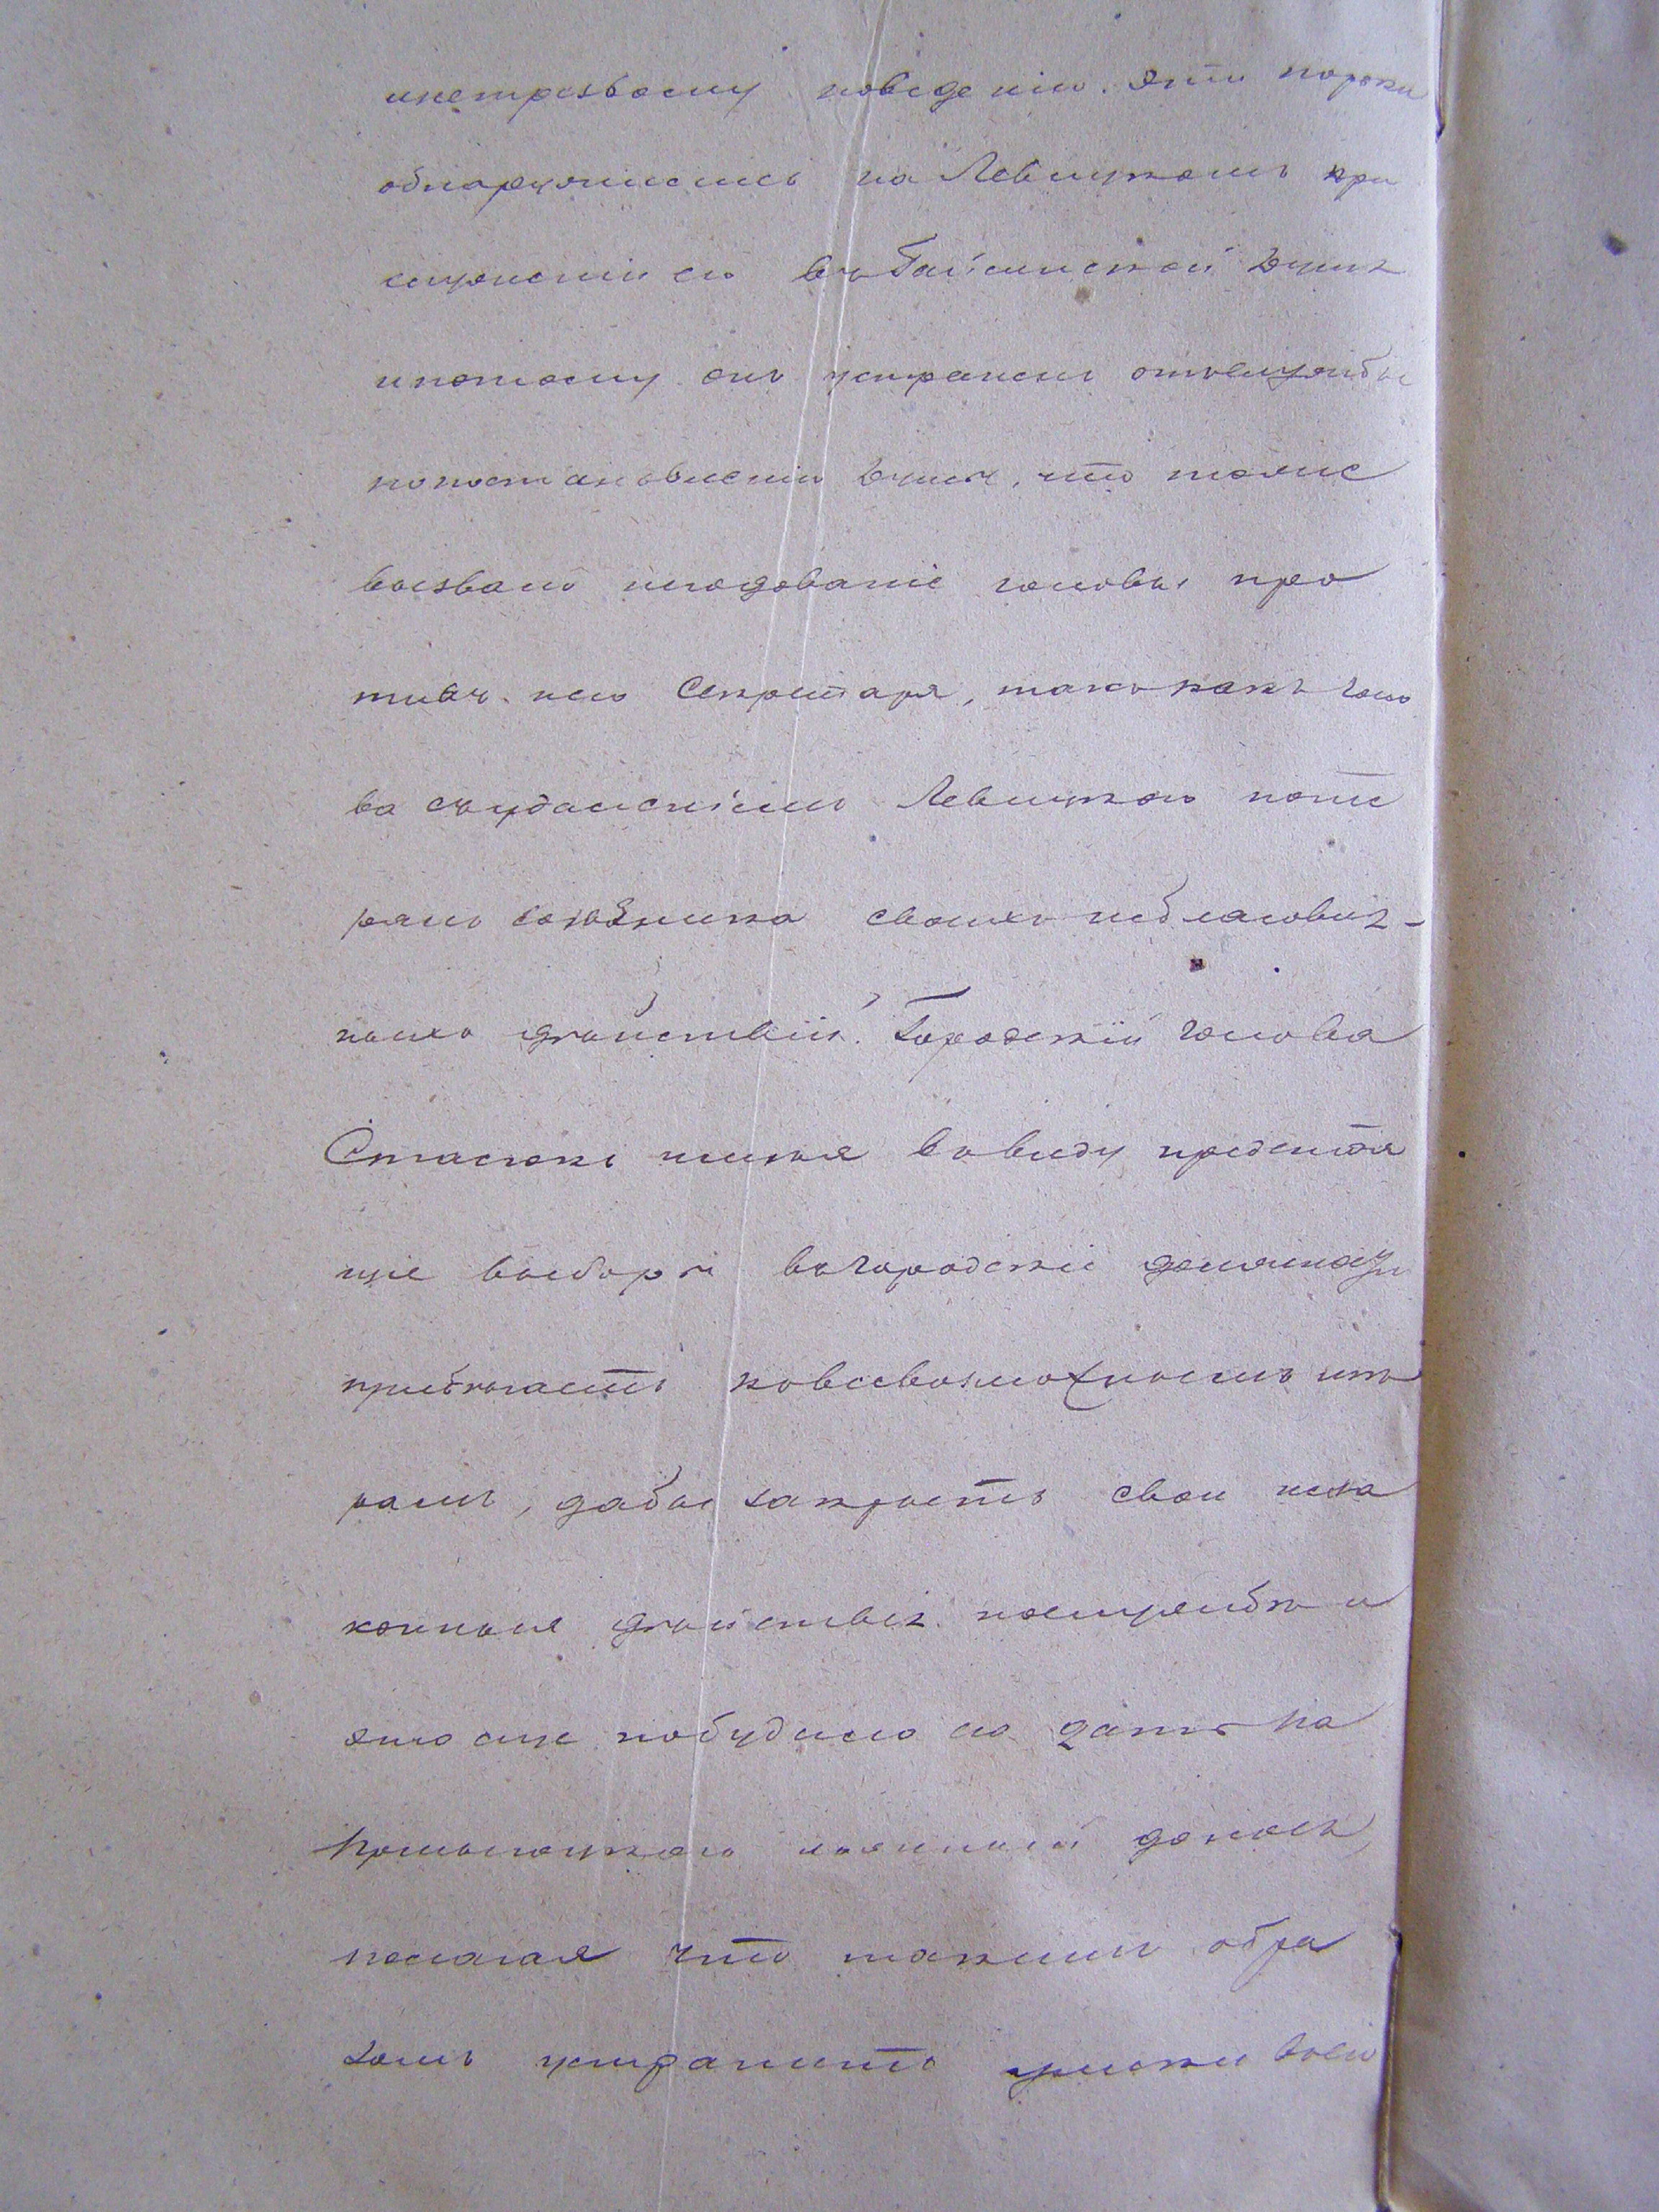 инетрезвому поведенію. Эти пороки
обнаружились на Левицкомъ при
служеніи его въ Балтинской Думѣ
ипотому онъ устраненъ отъслужбы
попостановленію Думы, что также
вызвало негодованіе головы про
тивъ него Секретаря, такъ какъ голо
ва съудаленіемъ Левицкого поте
рялъ союзника своихъ неблаговид-
ныхъ дѣйствій. Городской голова
Стасюкъ имѣя въвиду предстоя
щіе выборы въгородскіе
прибѣгаетъ ковсевозможнымъ мѣ
рамъ, дабы закрыть свои неза
конныя дѣйствія послужбѣ и
это еще побудило его дать на
ложный доносъ,
полагая что такимъ обра
зомъ устранитъ